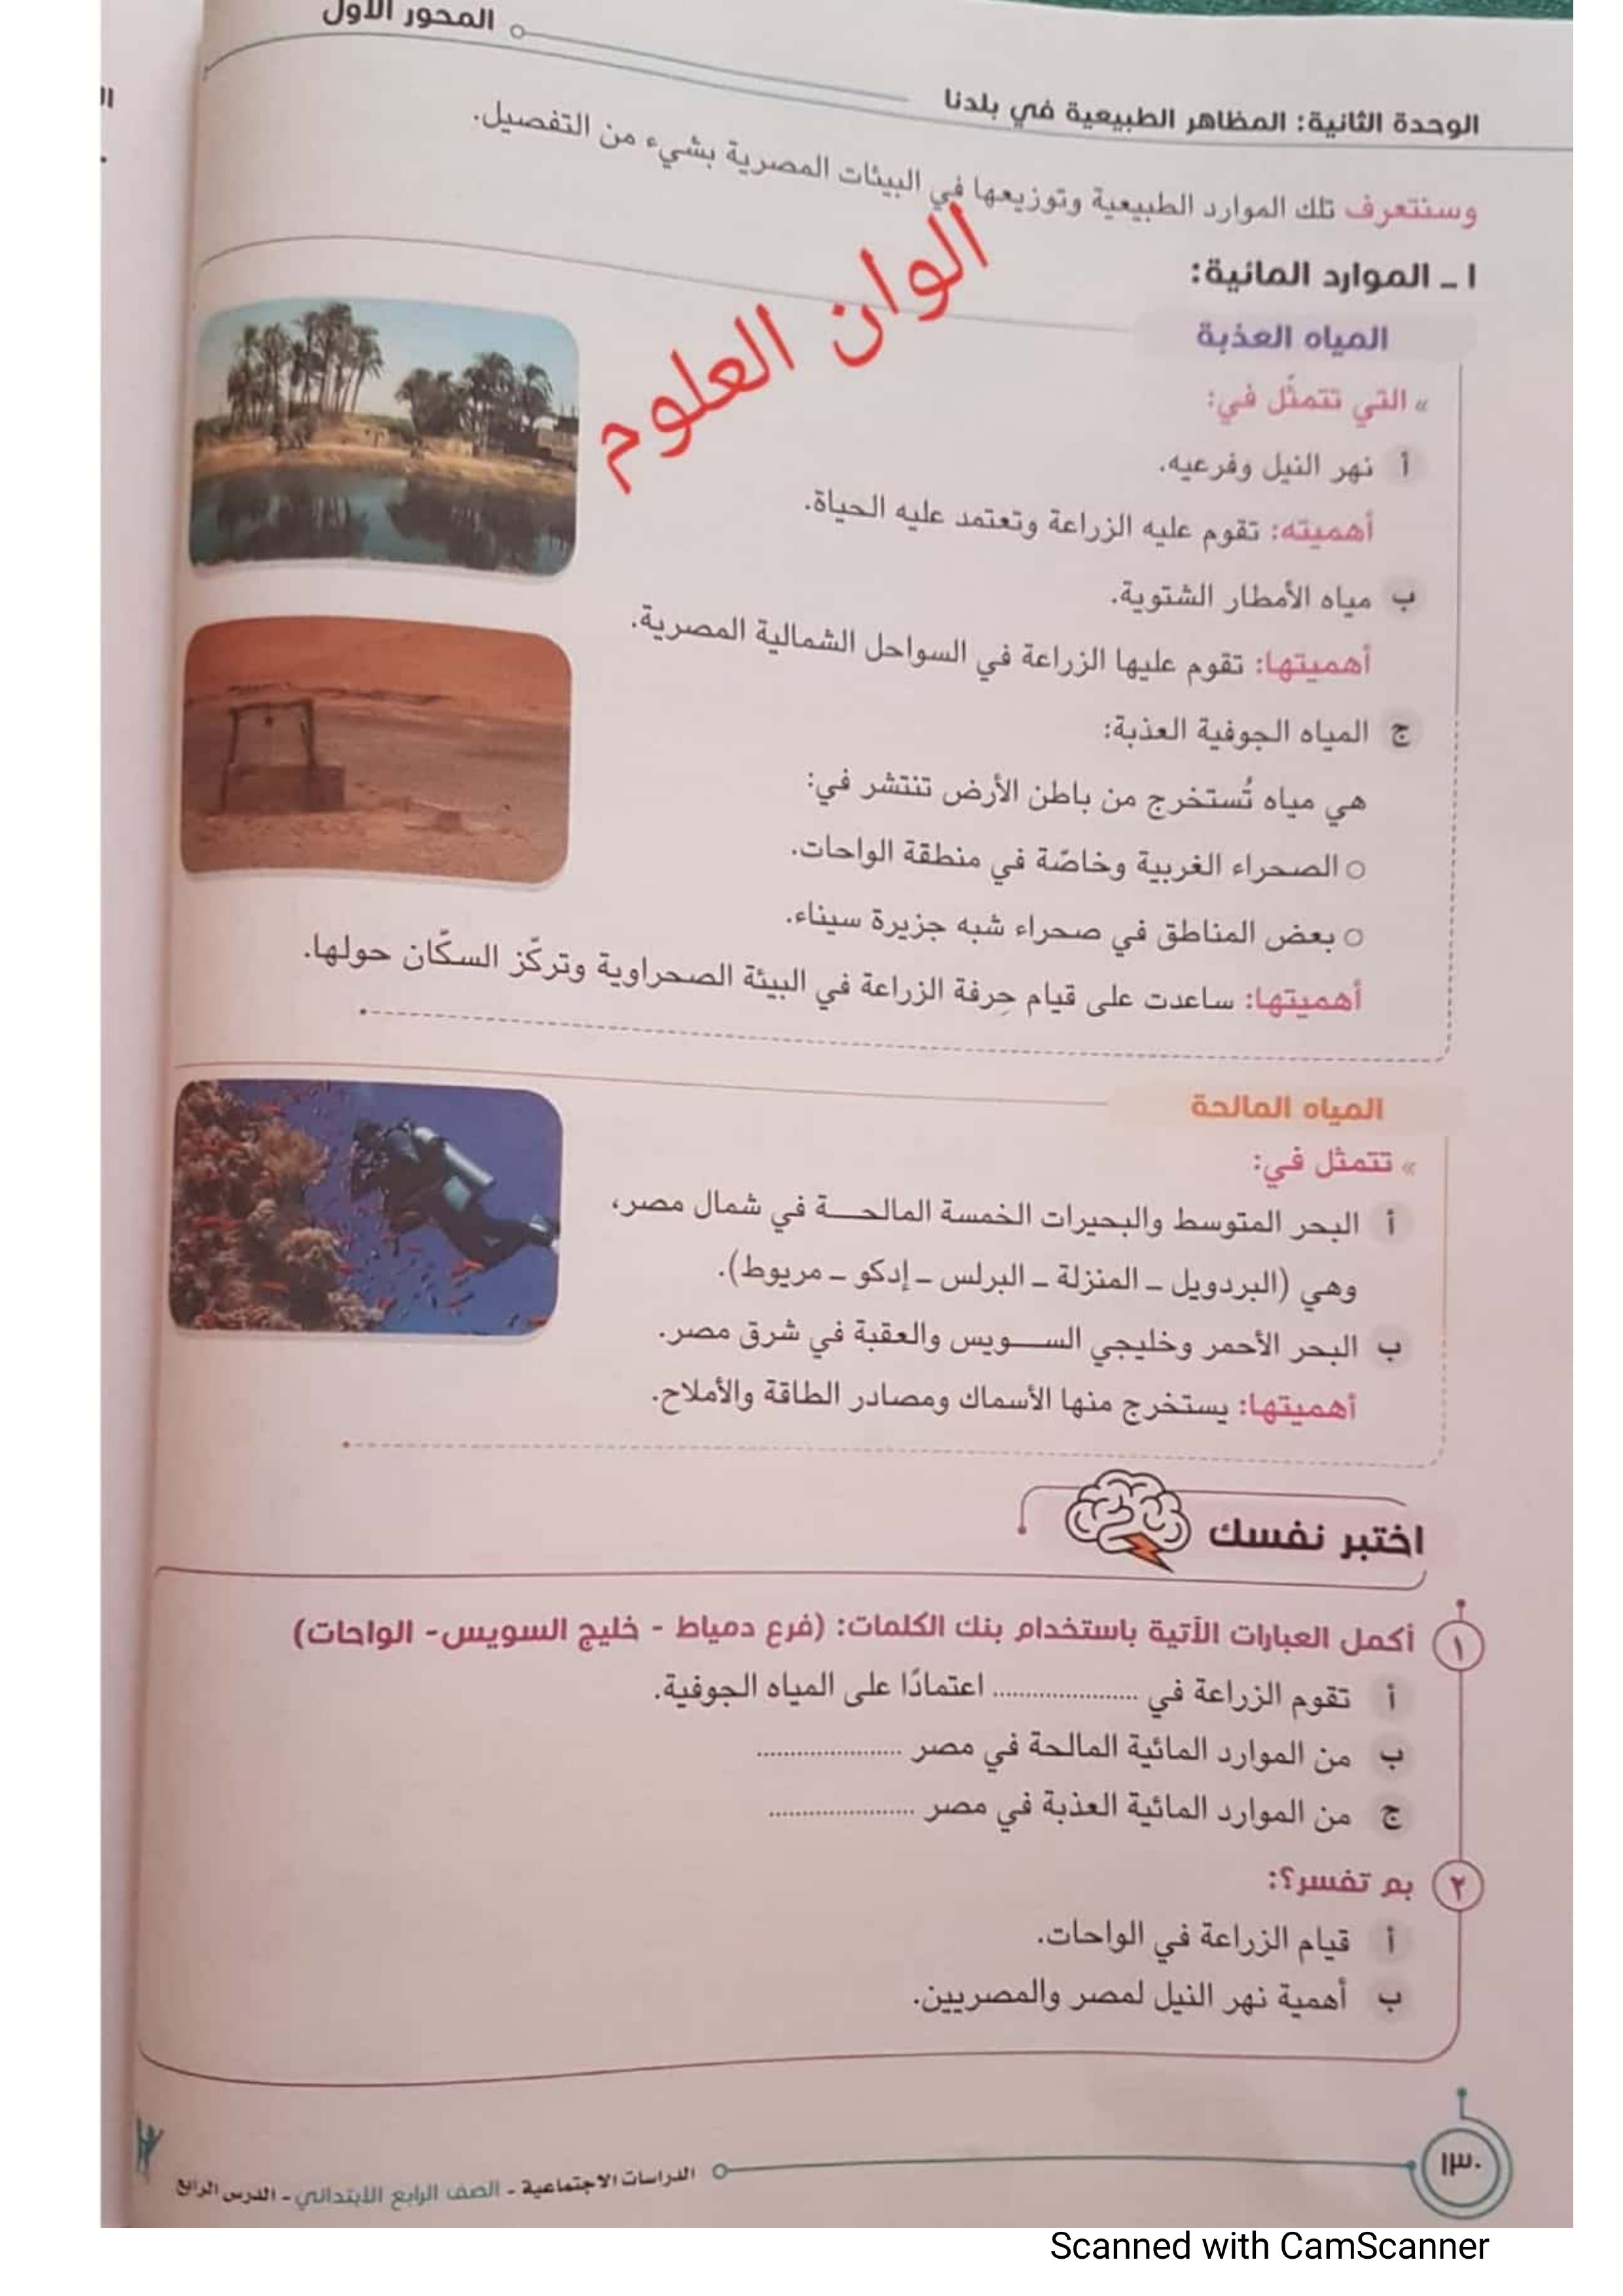 المحور الأول
الوحدة الثانية: المظاهر الطبيعية في بلدنا
وسنتعرف تلك الموارد الطبيعية وتوزيعها في البيئات المصرية بشيء من التفصيل.
الوان العلوم
١ ـ الموارد المائية:
المياه العذبة
» التي تتمثَّل في:
أ نهر النيل وفرعيه.
أهميته: تقوم عليه الزراعة وتعتمد عليه الحياة.
ب مياه الأمطار الشتوية.
أهميتها: تقوم عليها الزراعة في السواحل الشمالية المصرية.
ج المياه الجوفية العذبة:
هي مياه تُستخرج من باطن الأرض تنتشر في:
○ الصحراء الغربية وخاصّة في منطقة الواحات.
○ بعض المناطق في صحراء شبه جزيرة سيناء.
أهميتها: ساعدت على قيام حِرفة الزراعة في البيئة الصحراوية وتركّز السكّان حولها.
المياه المالحة
» تتمثل في:
أ البحر المتوسط والبحيرات الخمسة المالحـــة في شمال مصر،
وهي (البردويل ـ المنزلة ـ البرلس ـ إدكو ـ مريوط).
ب البحر الأحمر وخليجي الســـويس والعقبة في شرق مصر.
أهميتها: يستخرج منها الأسماك ومصادر الطاقة والأملاح.
اختبر نفسك
١ أكمل العبارات الآتية باستخدام بنك الكلمات: (فرع دمياط - خليج السويس- الواحات)
أ تقوم الزراعة في ..................... اعتمادًا على المياه الجوفية.
ب من الموارد المائية المالحة في مصر .....................
ج من الموارد المائية العذبة في مصر .....................
٢ بم تفسر؟:
أ قيام الزراعة في الواحات.
ب أهمية نهر النيل لمصر والمصريين.
١٣٠
الدراسات الاجتماعية ـ الصف الرابع الابتدائي ـ الدرس الرابع
Scanned with CamScanner